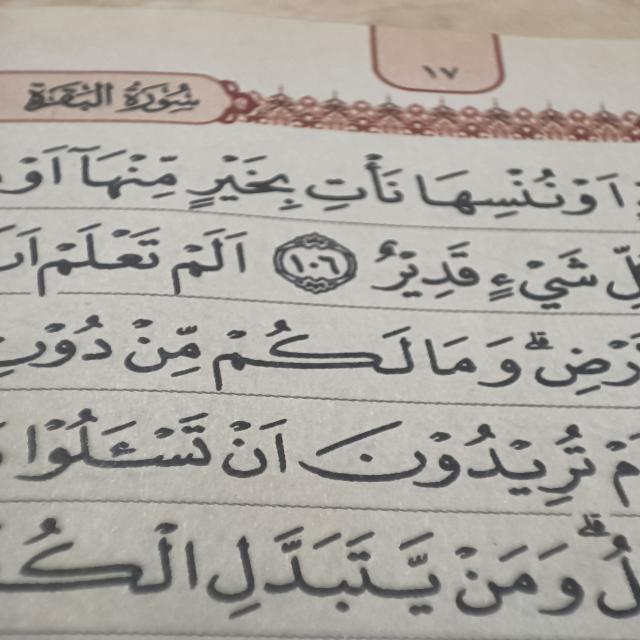 ١٧
سُوْرَةُ الْبَقَرَة
اَوْ نُنْسِهَا نَأْتِ بِخَيْرٍ مِّنْهَآ اَوْ
شَيْءٍ قَدِيْرٌ ١٠٦ اَلَمْ تَعْلَمْ
وَمَا لَكُمْ مِّنْ
تُرِيْدُوْنَ اَنْ تَسْـَٔلُوْا
وَمَنْ يَّتَبَدَّلِ